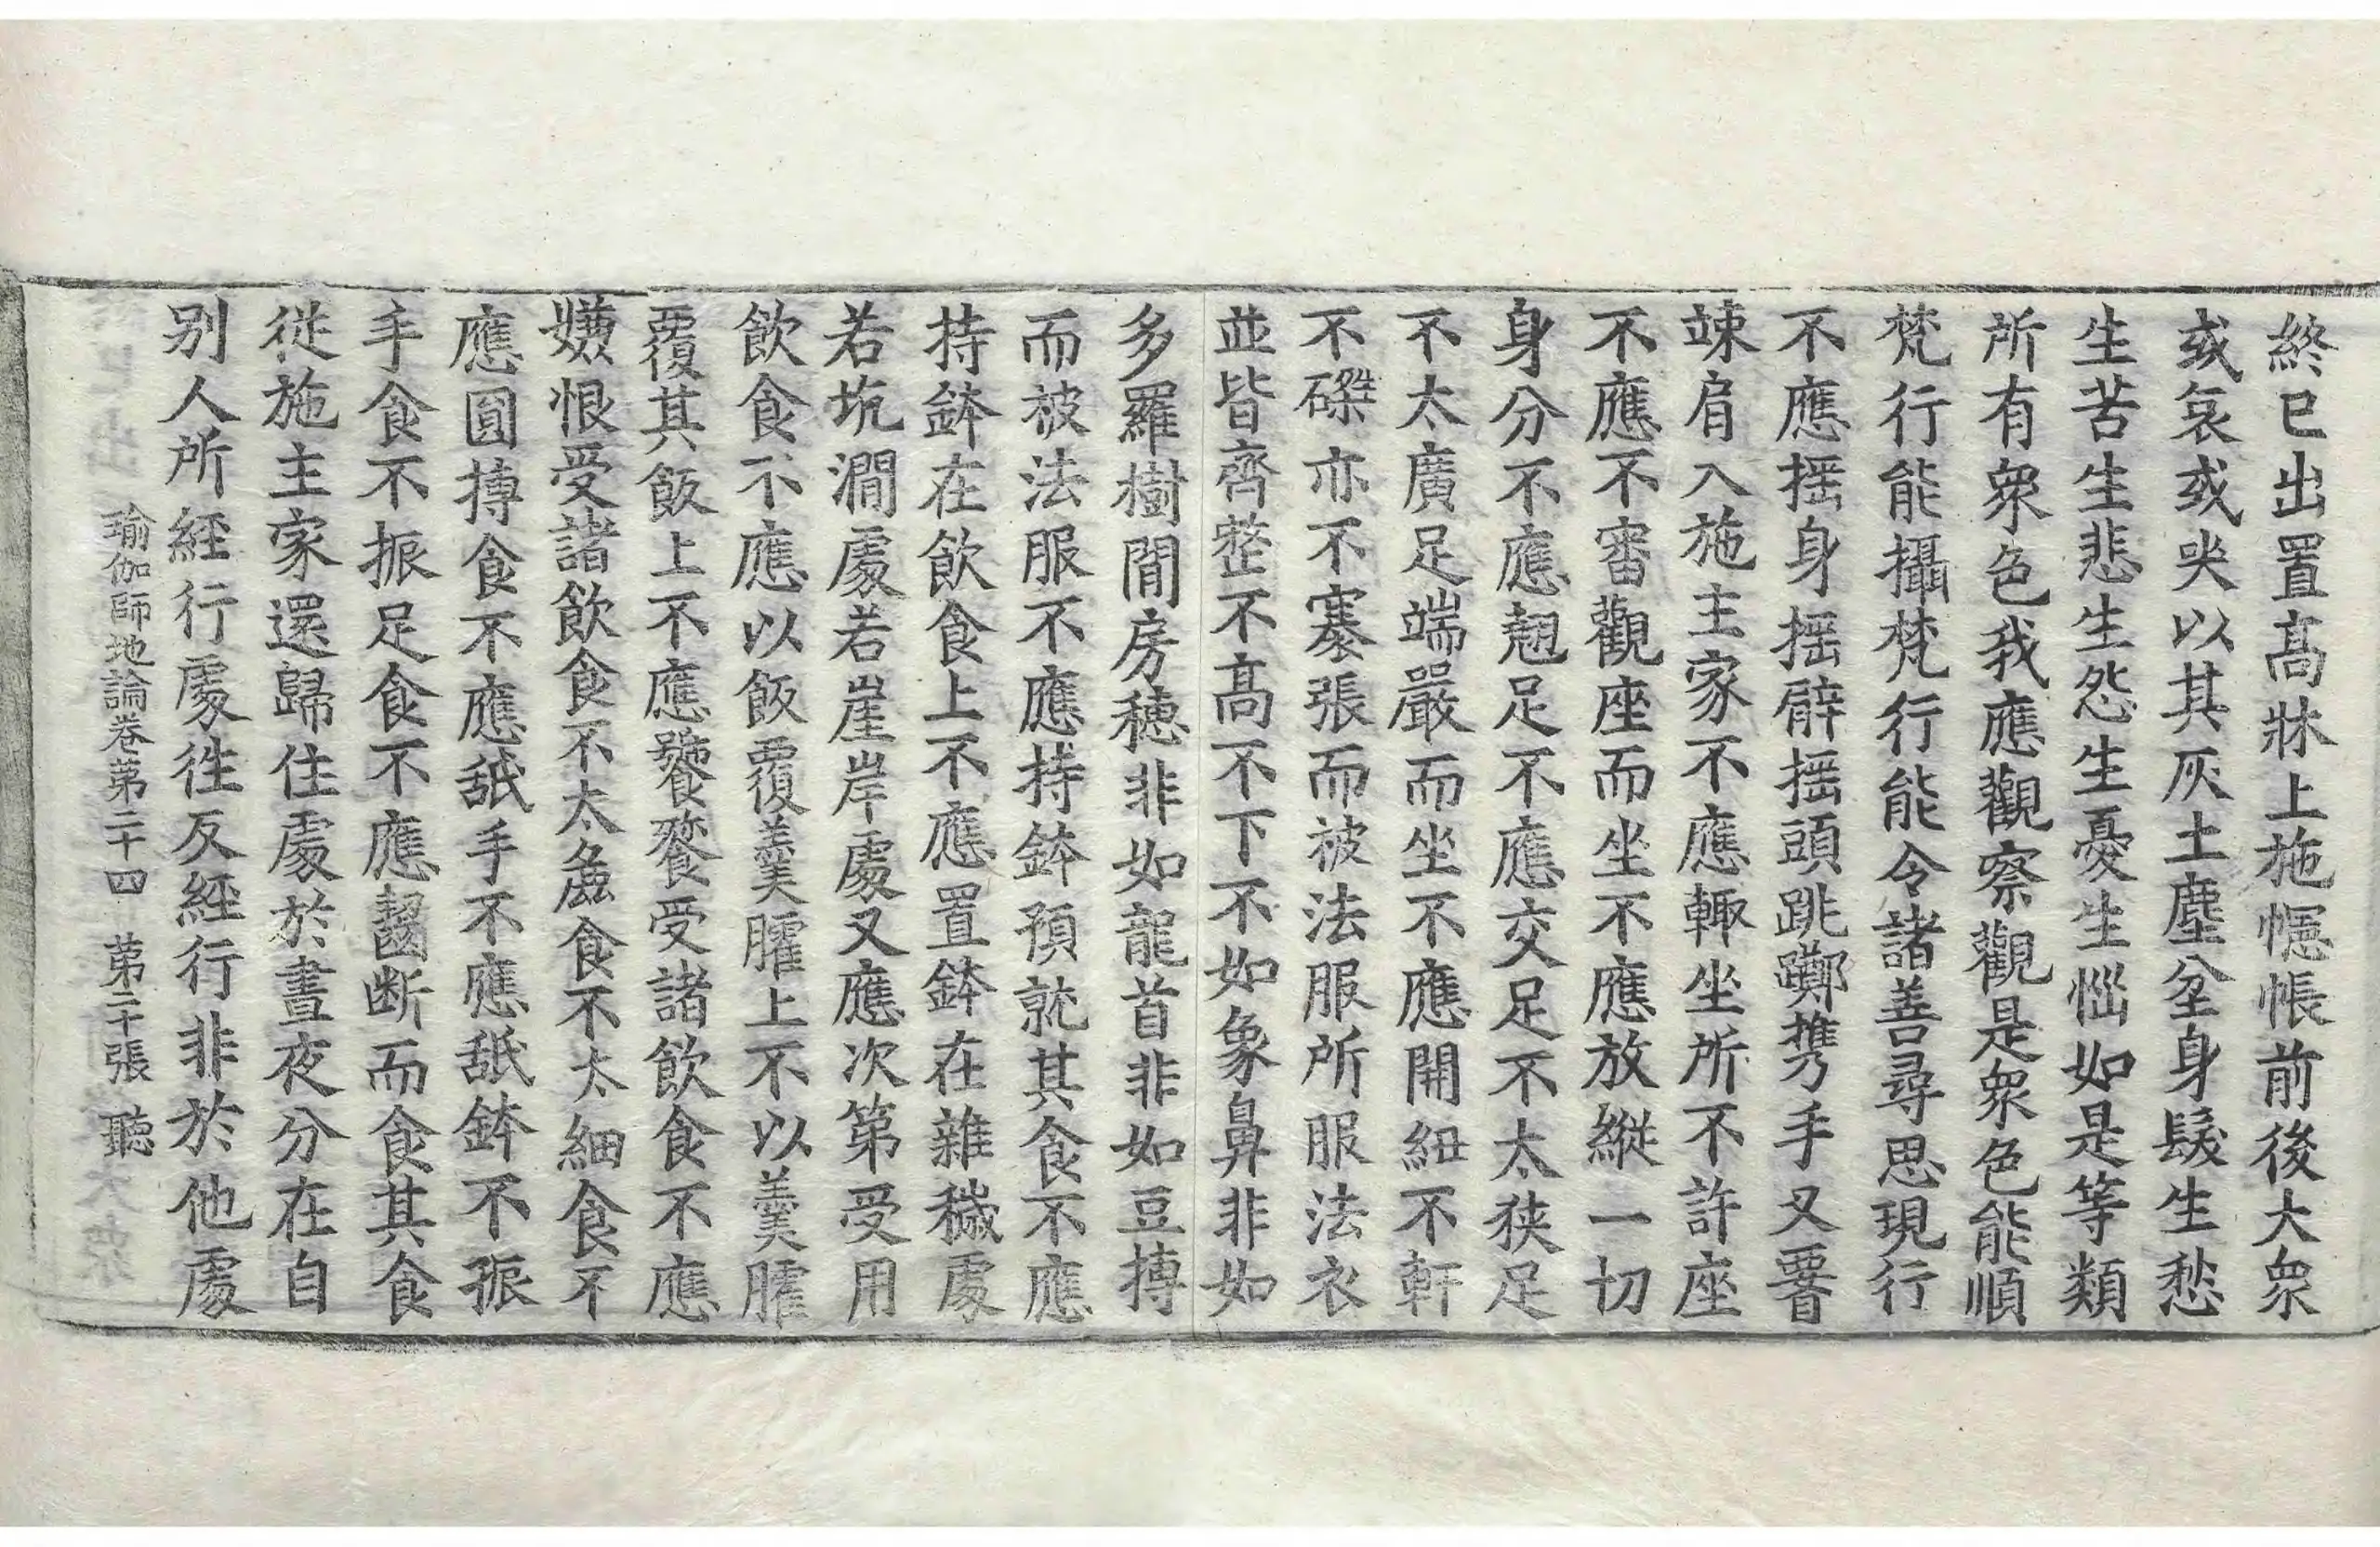 終已出置髙牀上施幰帳前後大衆
或哀或哭以其灰土塵坌身髮生愁
生苦生悲生怨生憂生惱如是等類
所有衆色我應觀察觀是衆色能順
梵行能攝梵行能令諸善尋思現行
不應揺身揺臂揺頭跳躑携手叉腰
竦肩入施主家不應輙坐所不許座
不應不審觀座而坐不應放縱一切
身分不應翹足不應交足不太狹足
不太廣足端嚴而坐不應開紐不軒
不磔亦不褰張而被法服所服法衣
並皆齊整不髙不下不如象鼻非如
多羅樹間房穗非如龍首非如豆摶
而被法服不應持鉢預就其食不應
持鉢在飲食上不應置鉢在雜穢處
若坑澗處若崖岸處又應次第受用
飲食不應以飯覆羹臛上不以羹臛
覆其飯上不應饕餮受諸飲食不應
嫌恨受諸飲食不太麁食不太細食不
應圓摶食不應舐手不應舐鉢不振
手食不振足食不應齧断而食其食
從施主家還歸住處於晝夜分在自
别人所經行處徃反經行非於他處
瑜伽師地論卷第二十四 第二十張 聽